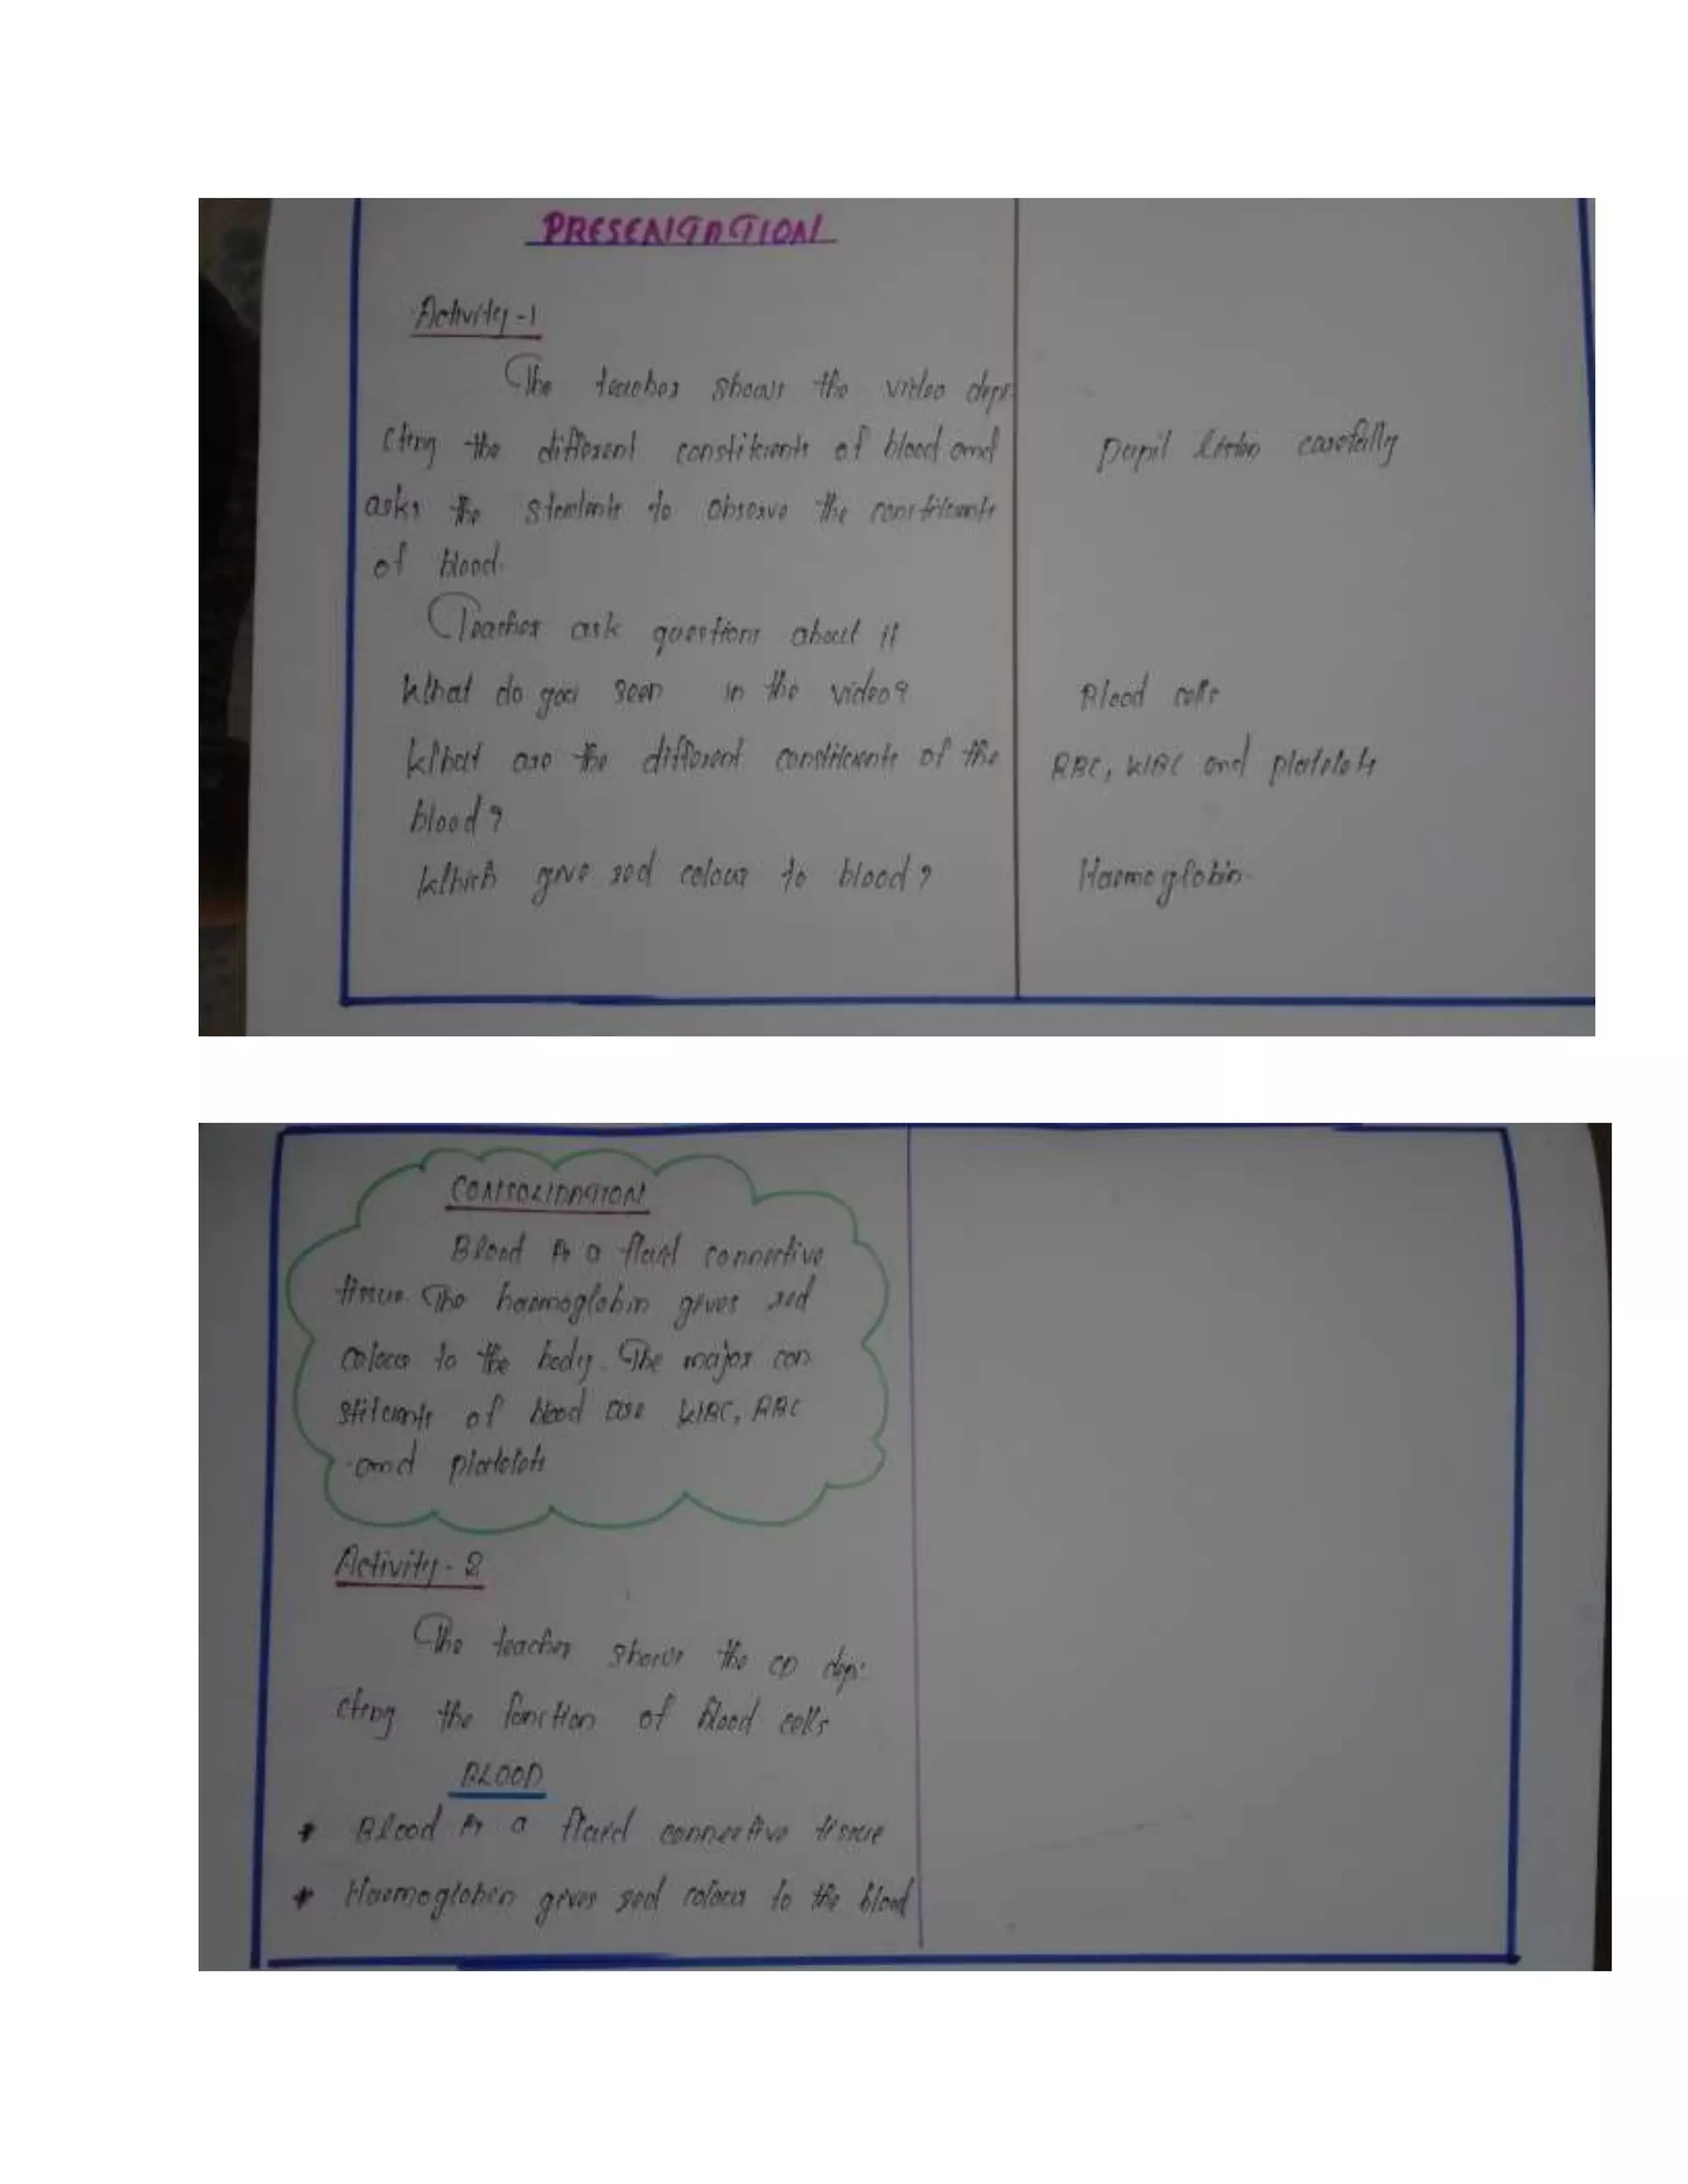 PRESENTATION
Activity-1
The teacher shows the video depi-
cting the different constituents of blood and
asks the students to observe the constituents
of blood.
Pupil listen carefully
Teacher ask questions about it
What do you seen in the video?
Blood cells
What are the different constituents of the
blood?
RBC, WBC and platelets
Which give red colour to blood?
Haemoglobin.
CONSOLIDATION
Blood is a fluid connective
tissue. The haemoglobin gives red
colour to the body. The major con
stituents of blood are WBC, RBC
and platelets
Activity-2
The teacher shows the CD depi-
cting the function of blood cells
BLOOD
* Blood is a fluid connective tissue
* Haemoglobin gives red colour to the blood